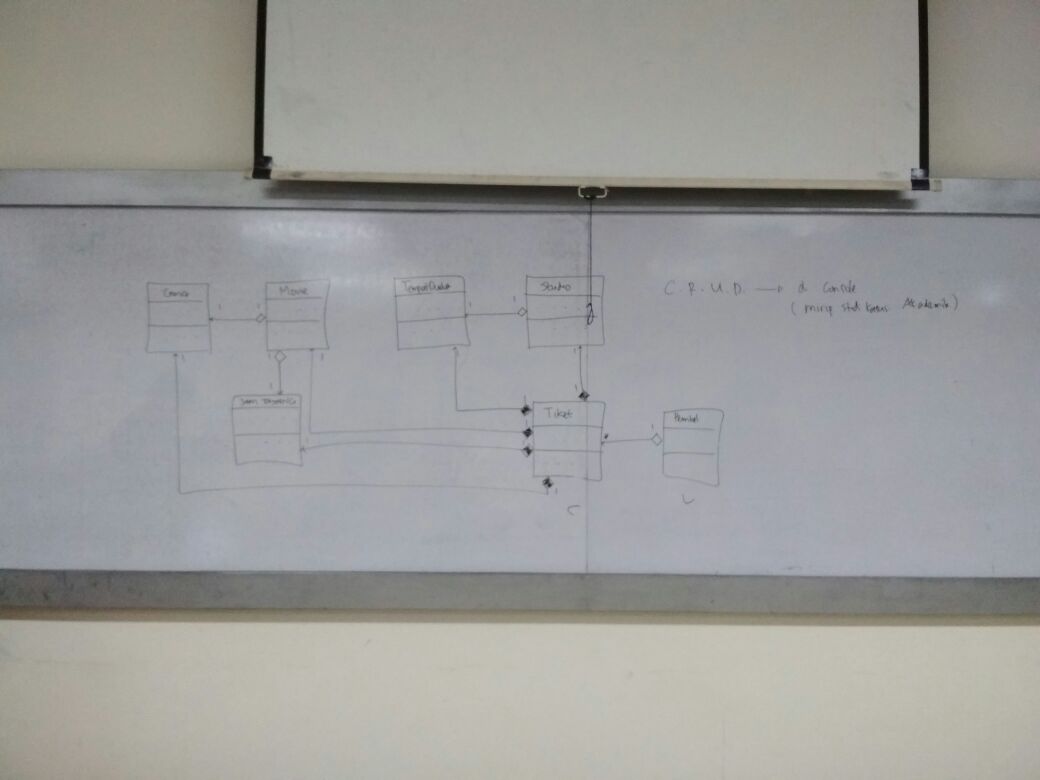 Genre
Movie
TempatDuduk
Studio
C. R. U. D. → di Console
( mirip studi kasus Akademik )
1
1
1
1
1
1
1
1
1
Jam Tayang
Tiket
Pembeli
1
1
*
1
1
C